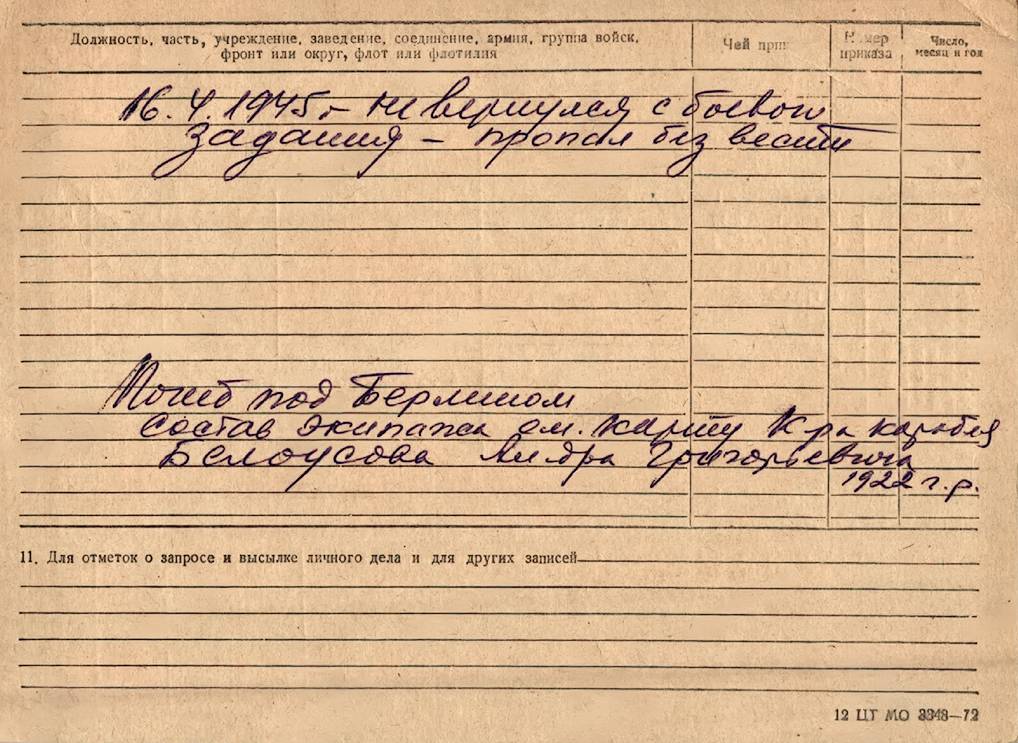 Должность, часть, учреждение, заведение, соединение, армия, группа войск,
фронт или округ, флот или флотилия
Чей прик
Номер
приказа
Число,
месяц и год
16.4.1945г. – не вернулся с боевого
задания – пропал без вести
Погиб под Берлином
Состав экипажа см. карту К-ра корабля
Белоусова Ал-дра Григорьевича
1922 г.р.
11. Для отметок о запросе и высылке личного дела и для других записей
12 ЦТ МО 3348—72